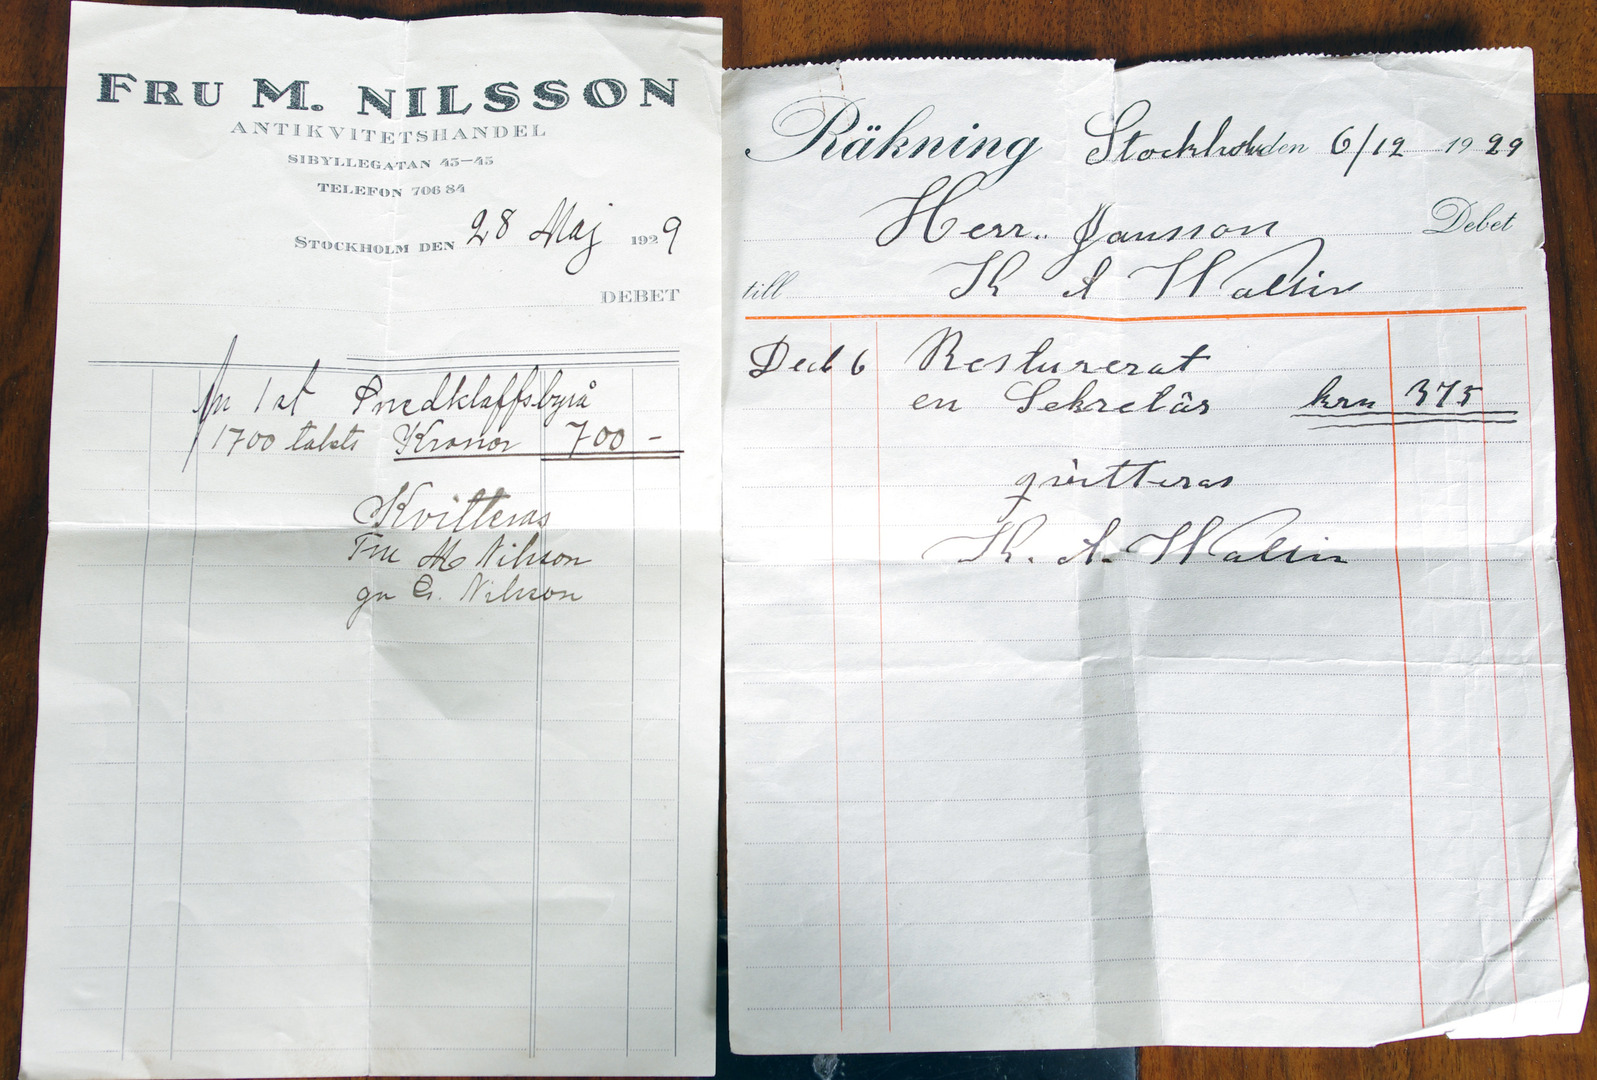 FRU M. NILSSON
ANTIKVITETSHANDEL
SIBYLLEGATAN 43–45
TELEFON 706 84
STOCKHOLM DEN 28 Maj 1929
DEBET
1 st Snedklaffsbyrå
1700 talets Kronor 700 –
Kvitteras
Fru M Nilsson
gm G. Nilsson
Räkning Stockholm den 6/12 1929
Herr. Jansson Debet
till K A Wallin
Dec 6 Resturerat
en Sekretär krn 375
qvitteras
K. A. Wallin